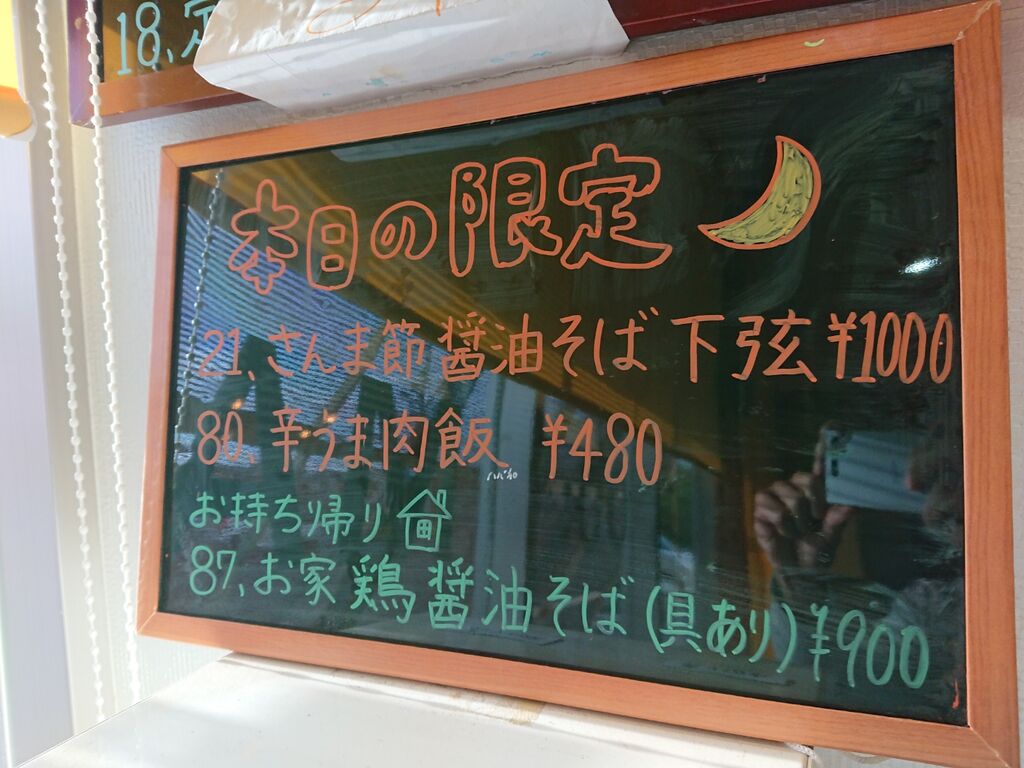 18、定
本日の限定
21、さんま節醤油そば 下弦 ¥1000
80、辛うま肉飯 ¥480
お持ち帰り
87、お家鶏醤油そば(具あり) ¥900